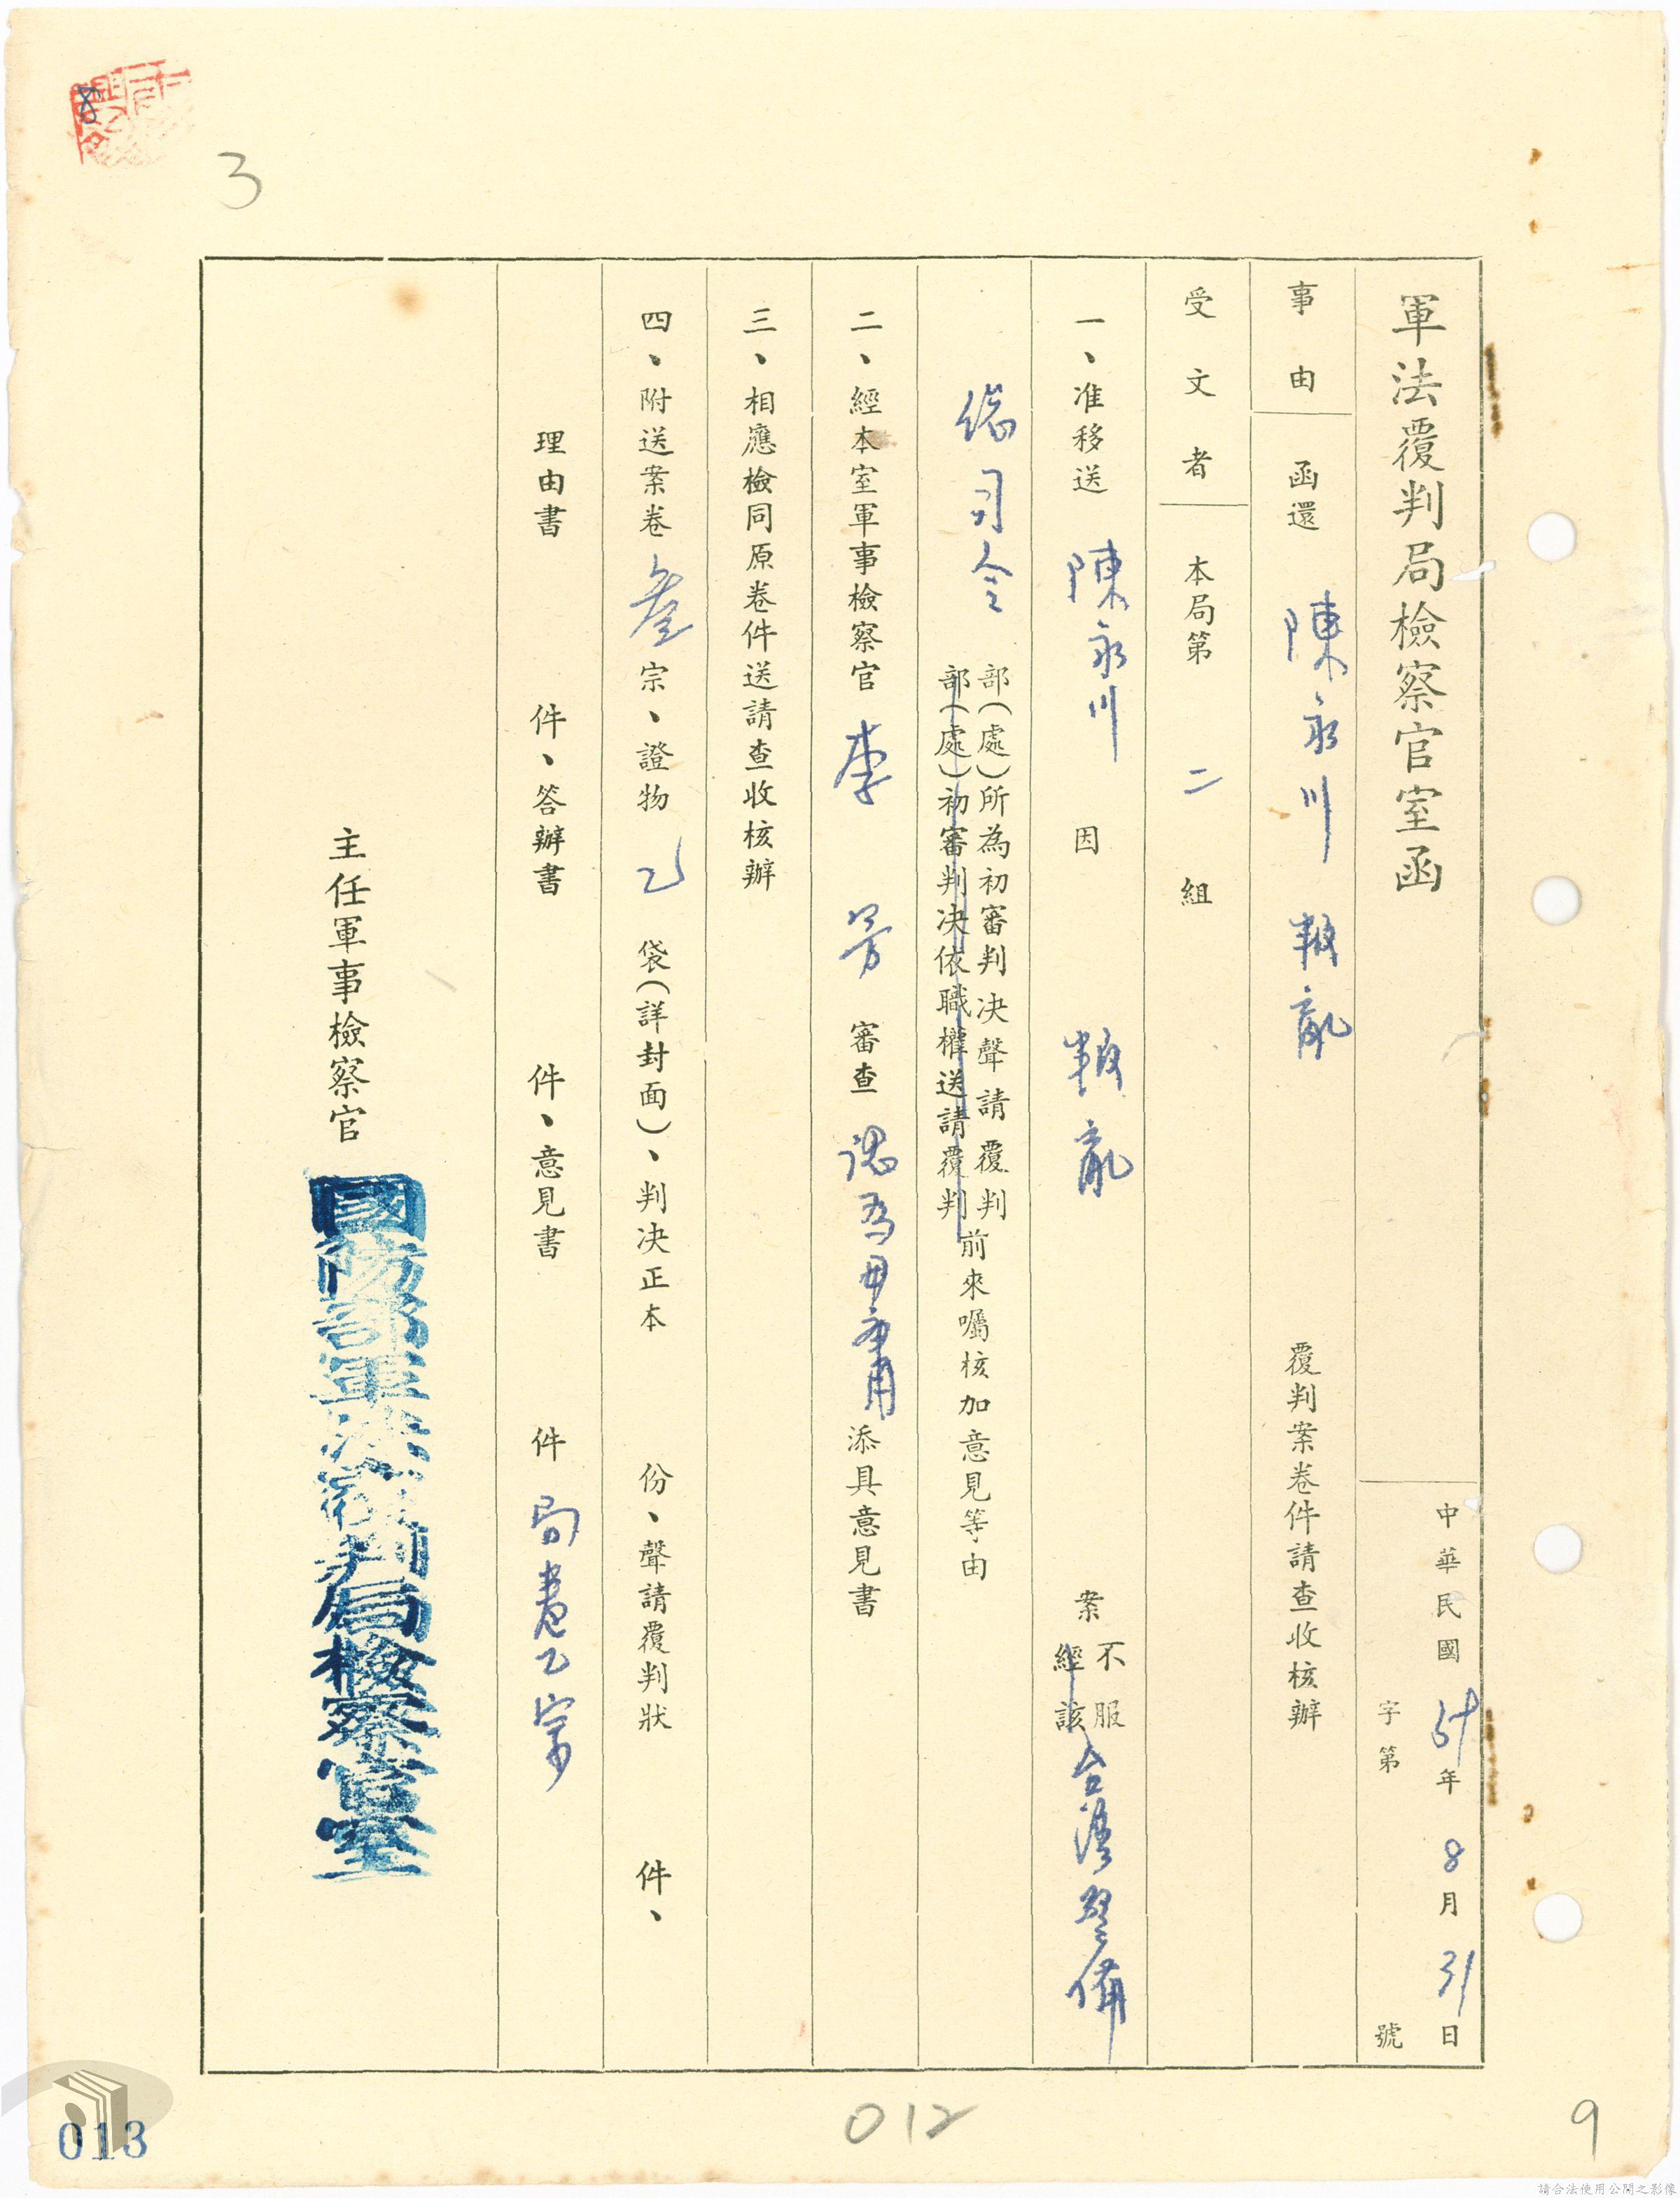 軍法覆判局檢察官室函
中華民國51年8月31日
字第 號
事由 函還 陳永川 叛亂 覆判案卷件請查收核辦
受文者 本局第二組
一、准移送 陳永川 因 叛亂 案 不服 台灣警備
經該
總司令 部(處)所為初審判决聲請覆判
部(處)初審判决依職權送請覆判
前來囑核加意見等由
二、經本室軍事檢察官 李 芳 審查 認為毋庸添具意見書
三、相應檢同原卷件送請查收核辦
四、附送案卷叁宗、證物 乙 袋(詳封面)、判决正本 份、聲請覆判狀 件、
理由書 件、答辦書 件、意見書 件 局卷乙宗
主任軍事檢察官
國防部軍法覆判局檢察官室
8
3
012
013
9
請合法使用公開之影像